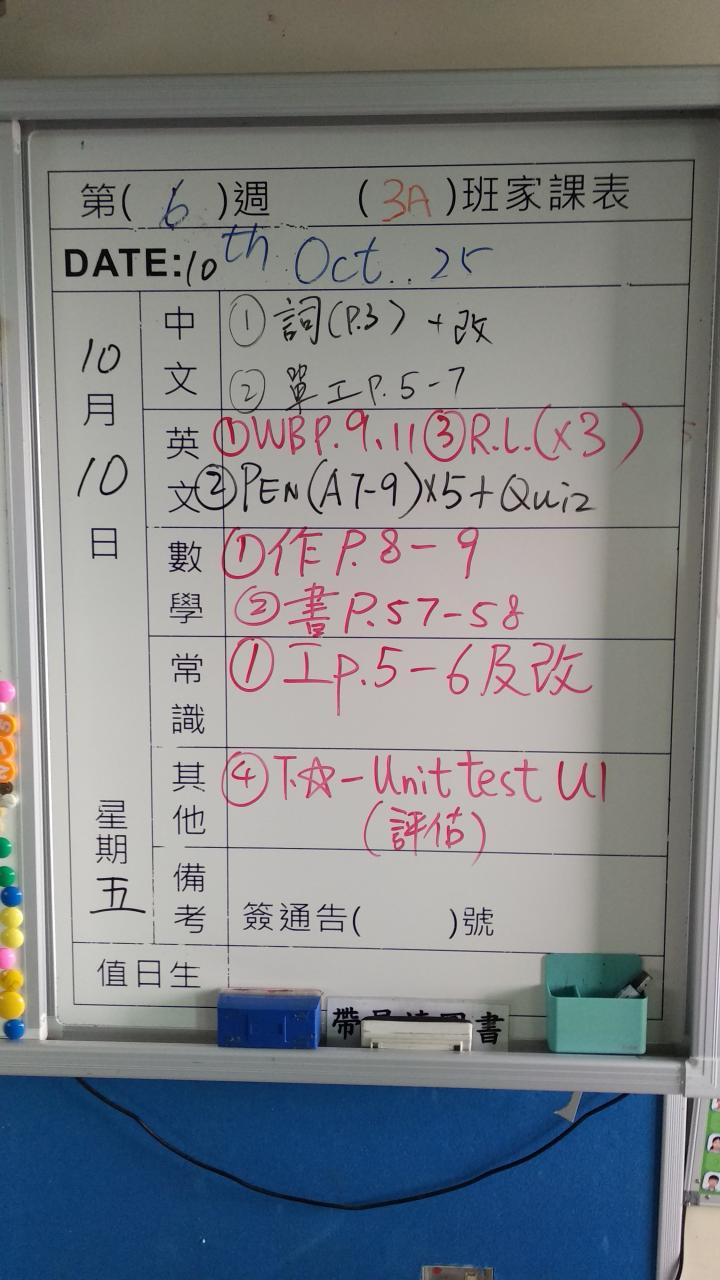 第( 6 )週 ( 3A )班家課表
DATE: 10th Oct.. 25
10月10日
星期五
中文
① 詞(P.3) + 改
② 單工P.5-7
英文
① WB P.9、11 ③ R.L.(x3)
② PEN(A7-9)x5+Quiz
數學
① 作P.8-9
② 書P.57-58
常識
① 工p.5-6及改
其他
④ T.☆-Unit test U1
(評估)
備考
簽通告( )號
值日生
帶 書